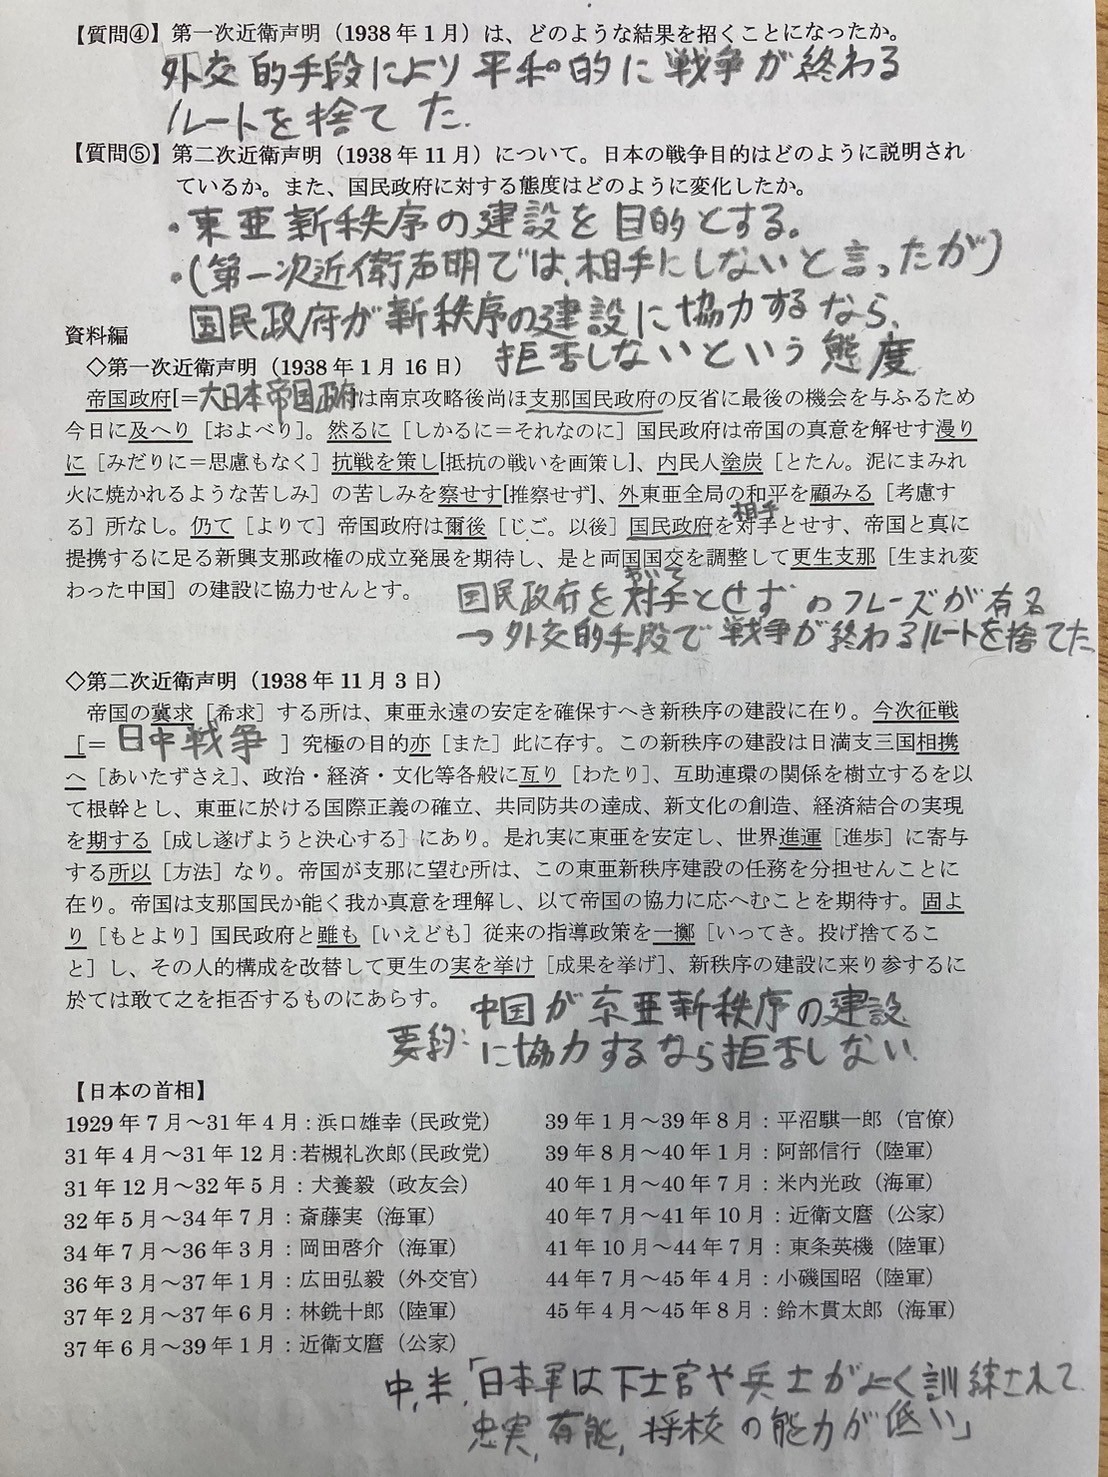 【質問④】第一次近衛声明（1938年1月）は、どのような結果を招くことになったか。
外交的手段により平和的に戦争が終わる
ルートを捨てた.
【質問⑤】第二次近衛声明（1938年11月）について。日本の戦争目的はどのように説明され
ているか。また、国民政府に対する態度はどのように変化したか。
・東亜新秩序の建設を目的とする。
・(第一次近衛声明では、相手にしないと言ったが)
国民政府が新秩序の建設に協力するなら、
拒否しないという態度
資料編
◇第一次近衛声明（1938年1月16日）
帝国政府[=大日本帝国政府は南京攻略後尚ほ支那国民政府の反省に最後の機会を与ふるため
今日に及へり［およべり］。然るに［しかるに＝それなのに］国民政府は帝国の真意を解せす漫り
に［みだりに＝思慮もなく］抗戦を策し[抵抗の戦いを画策し]、内民人塗炭［とたん。泥にまみれ
火に焼かれるような苦しみ］の苦しみを察せす[推察せず]、外東亜全局の和平を顧みる［考慮す
る］所なし。仍て［よりて］帝国政府は爾後［じご。以後］国民政府を対手とせす、帝国と真に
相手
提携するに足る新興支那政権の成立発展を期待し、是と両国国交を調整して更生支那［生まれ変
わった中国］の建設に協力せんとす。
あいて
国民政府を対手とせず のフレーズが有名
→外交的手段で戦争が終わるルートを捨てた
◇第二次近衛声明（1938年11月3日）
帝国の冀求［希求］する所は、東亜永遠の安定を確保すへき新秩序の建設に在り。今次征戦
［＝日中戦争］究極の目的亦［また］此に存す。この新秩序の建設は日満支三国相携
へ［あいたずさえ］、政治・経済・文化等各般に亙り［わたり］、互助連環の関係を樹立するを以
て根幹とし、東亜に於ける国際正義の確立、共同防共の達成、新文化の創造、経済結合の実現
を期する［成し遂げようと決心する］にあり。是れ実に東亜を安定し、世界進運［進歩］に寄与
する所以［方法］なり。帝国が支那に望む所は、この東亜新秩序建設の任務を分担せんことに
在り。帝国は支那国民か能く我か真意を理解し、以て帝国の協力に応へむことを期待す。固よ
り［もとより］国民政府と雖も［いえども］従来の指導政策を一擲［いってき。投げ捨てるこ
と］し、その人的構成を改替して更生の実を挙け［成果を挙げ］、新秩序の建設に来り参するに
於ては敢て之を拒否するものにあらす。
要約: 中国が東亜新秩序の建設
に協力するなら拒否しない.
【日本の首相】
1929年7月～31年4月：浜口雄幸（民政党）
31年4月～31年12月：若槻礼次郎（民政党）
31年12月～32年5月：犬養毅（政友会）
32年5月～34年7月：斎藤実（海軍）
34年7月～36年3月：岡田啓介（海軍）
36年3月～37年1月：広田弘毅（外交官）
37年2月～37年6月：林銑十郎（陸軍）
37年6月～39年1月：近衛文麿（公家）
39年1月～39年8月：平沼騏一郎（官僚）
39年8月～40年1月：阿部信行（陸軍）
40年1月～40年7月：米内光政（海軍）
40年7月～41年10月：近衛文麿（公家）
41年10月～44年7月：東条英機（陸軍）
44年7月～45年4月：小磯国昭（陸軍）
45年4月～45年8月：鈴木貫太郎（海軍）
中,米,「日本軍は下士官や兵士がよく訓練されて
忠実,有能,将校の能力が低い」